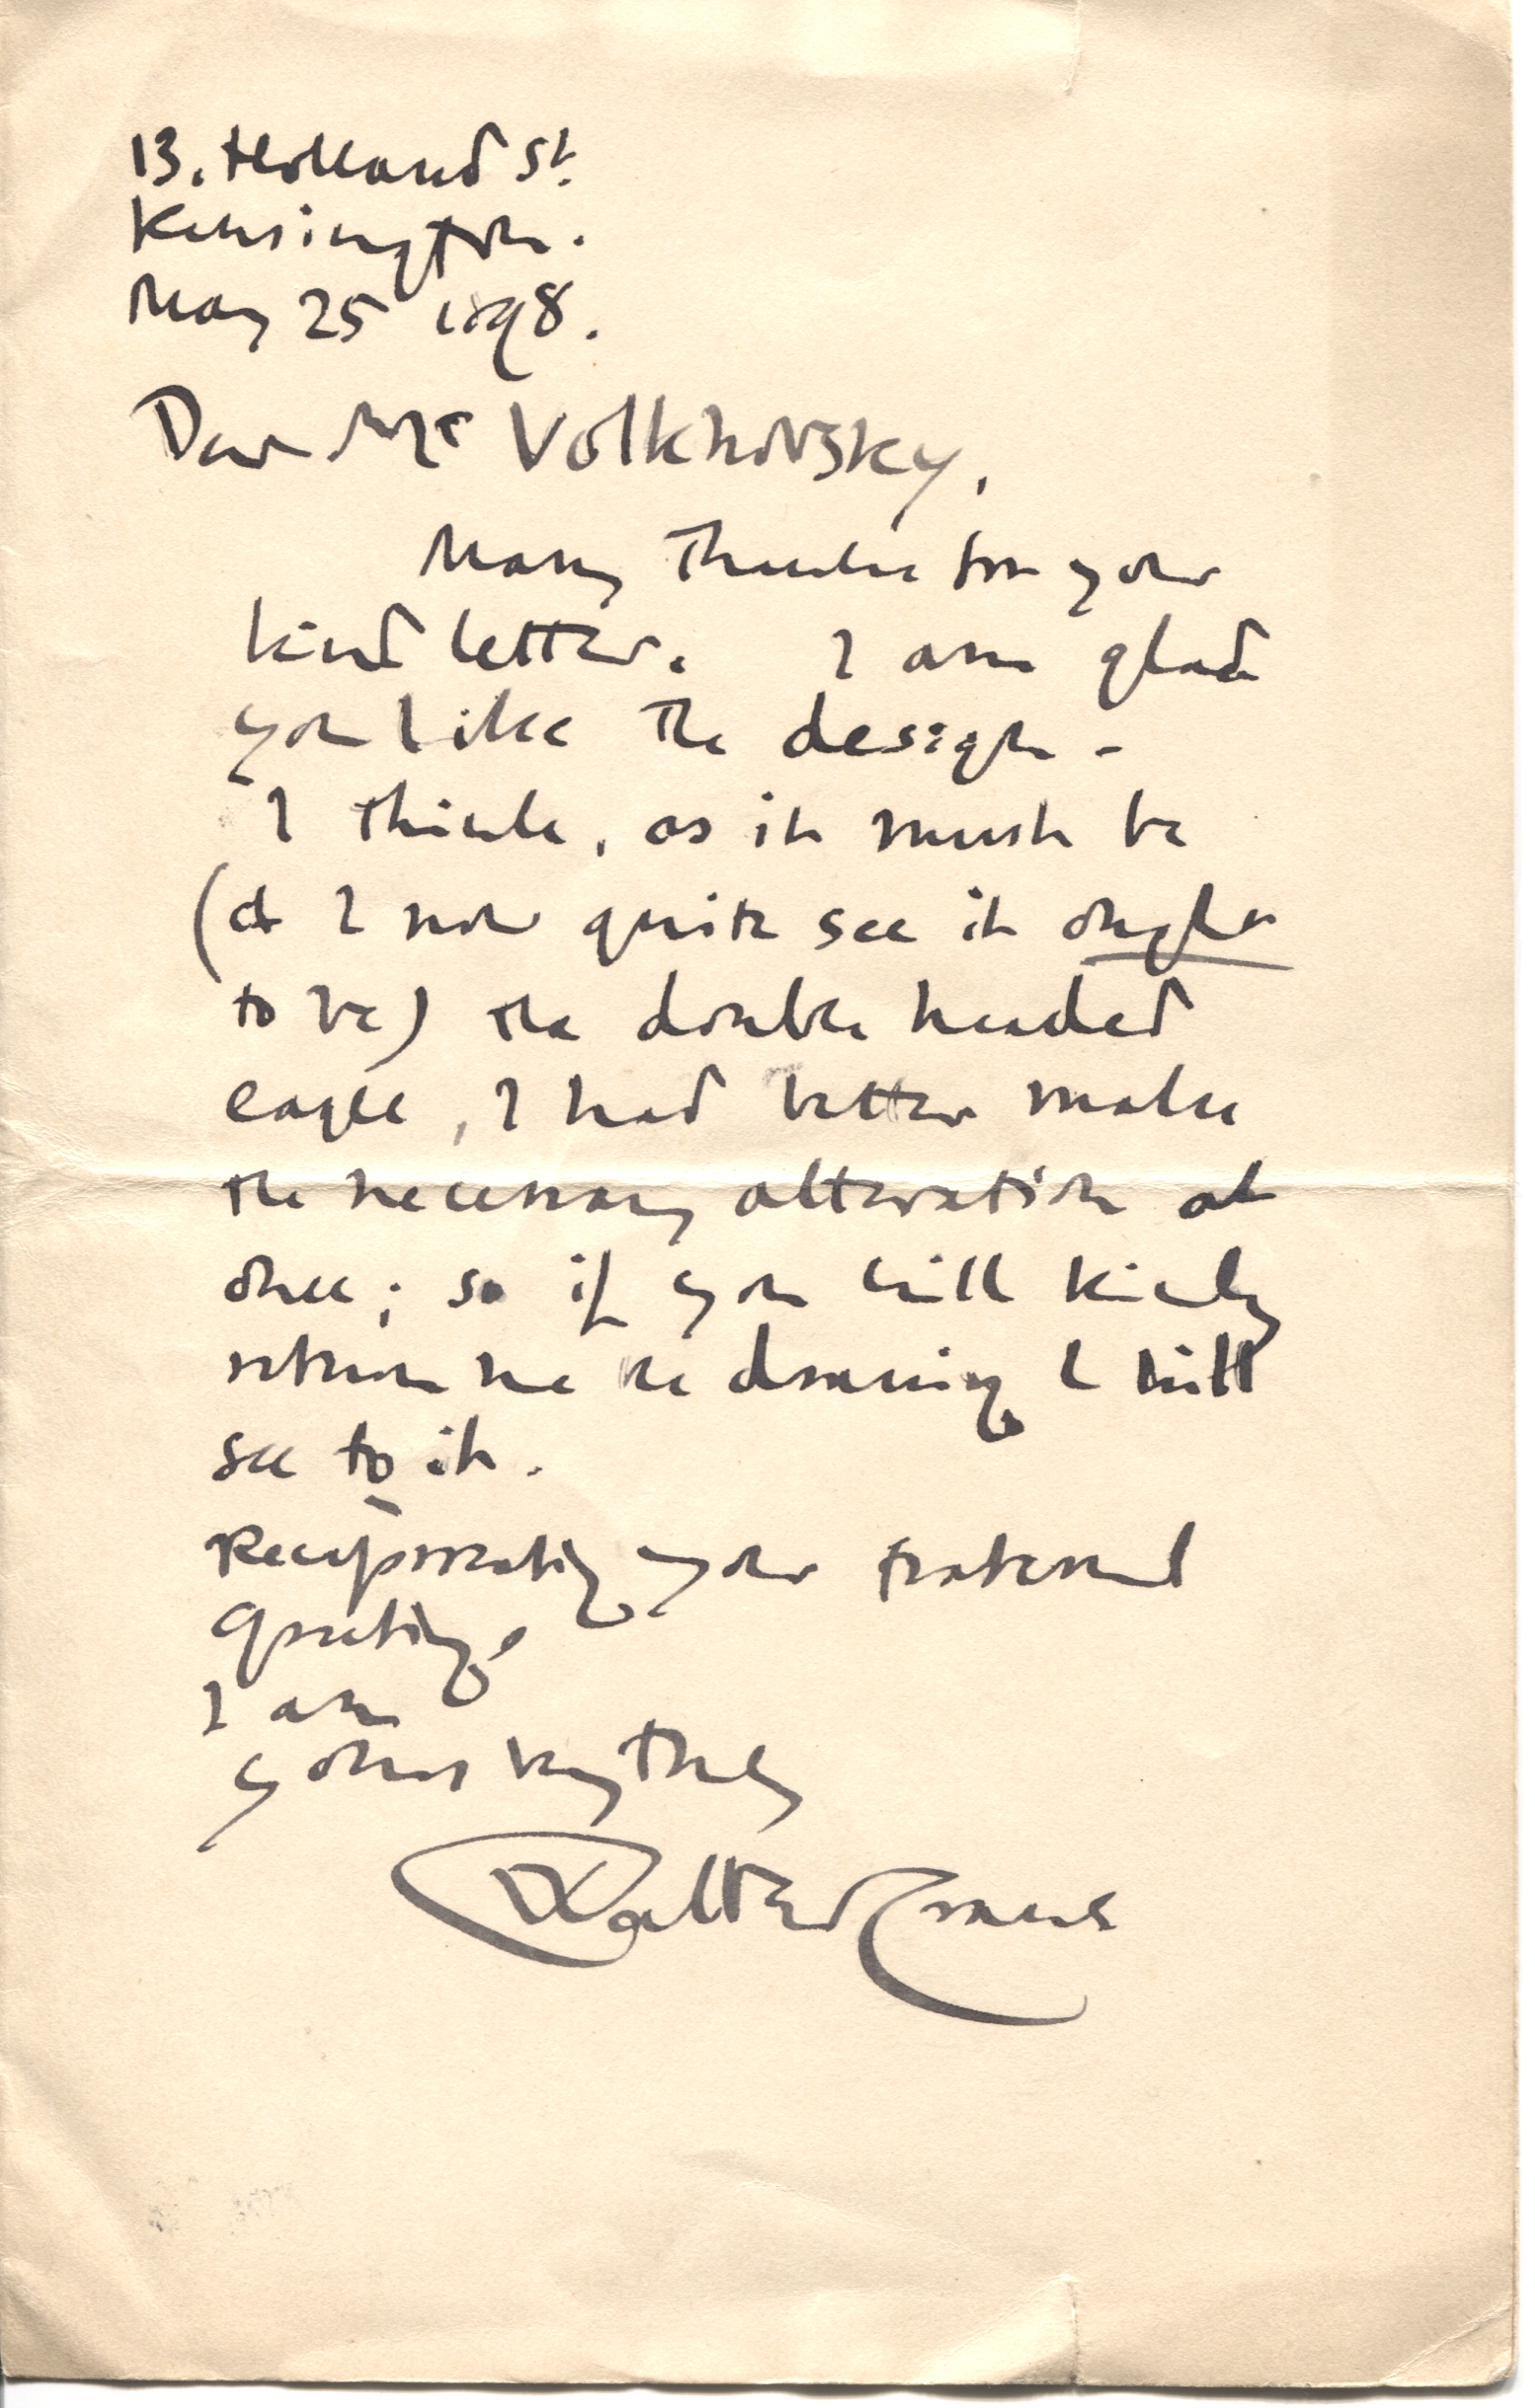 13. Holland St.
Kensington.
May 25 1898.
Dear Mr Volkhovsky,
Many thanks for your
kind letter. I am glad
you like the design -
I think, as it must be
(& I now quite see it ought
to be) the double headed
eagle, I had better make
the necessary alteration at
once; so if you will kindly
return me the drawing I will
see to it.
Reciprocating your fraternal
greeting,
I am
yours very truly
Walter Crane